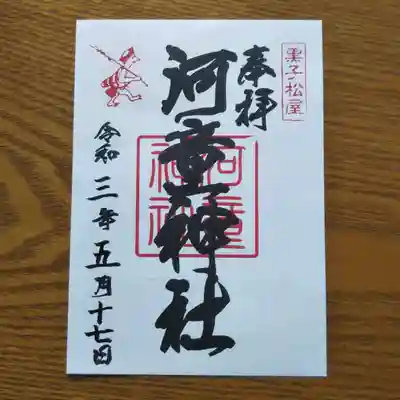 菓子松屋
奉拝
河童神社
河童神社
令和三年五月十七日